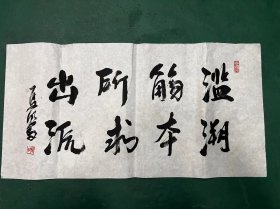 滥觞所出
溯本求源